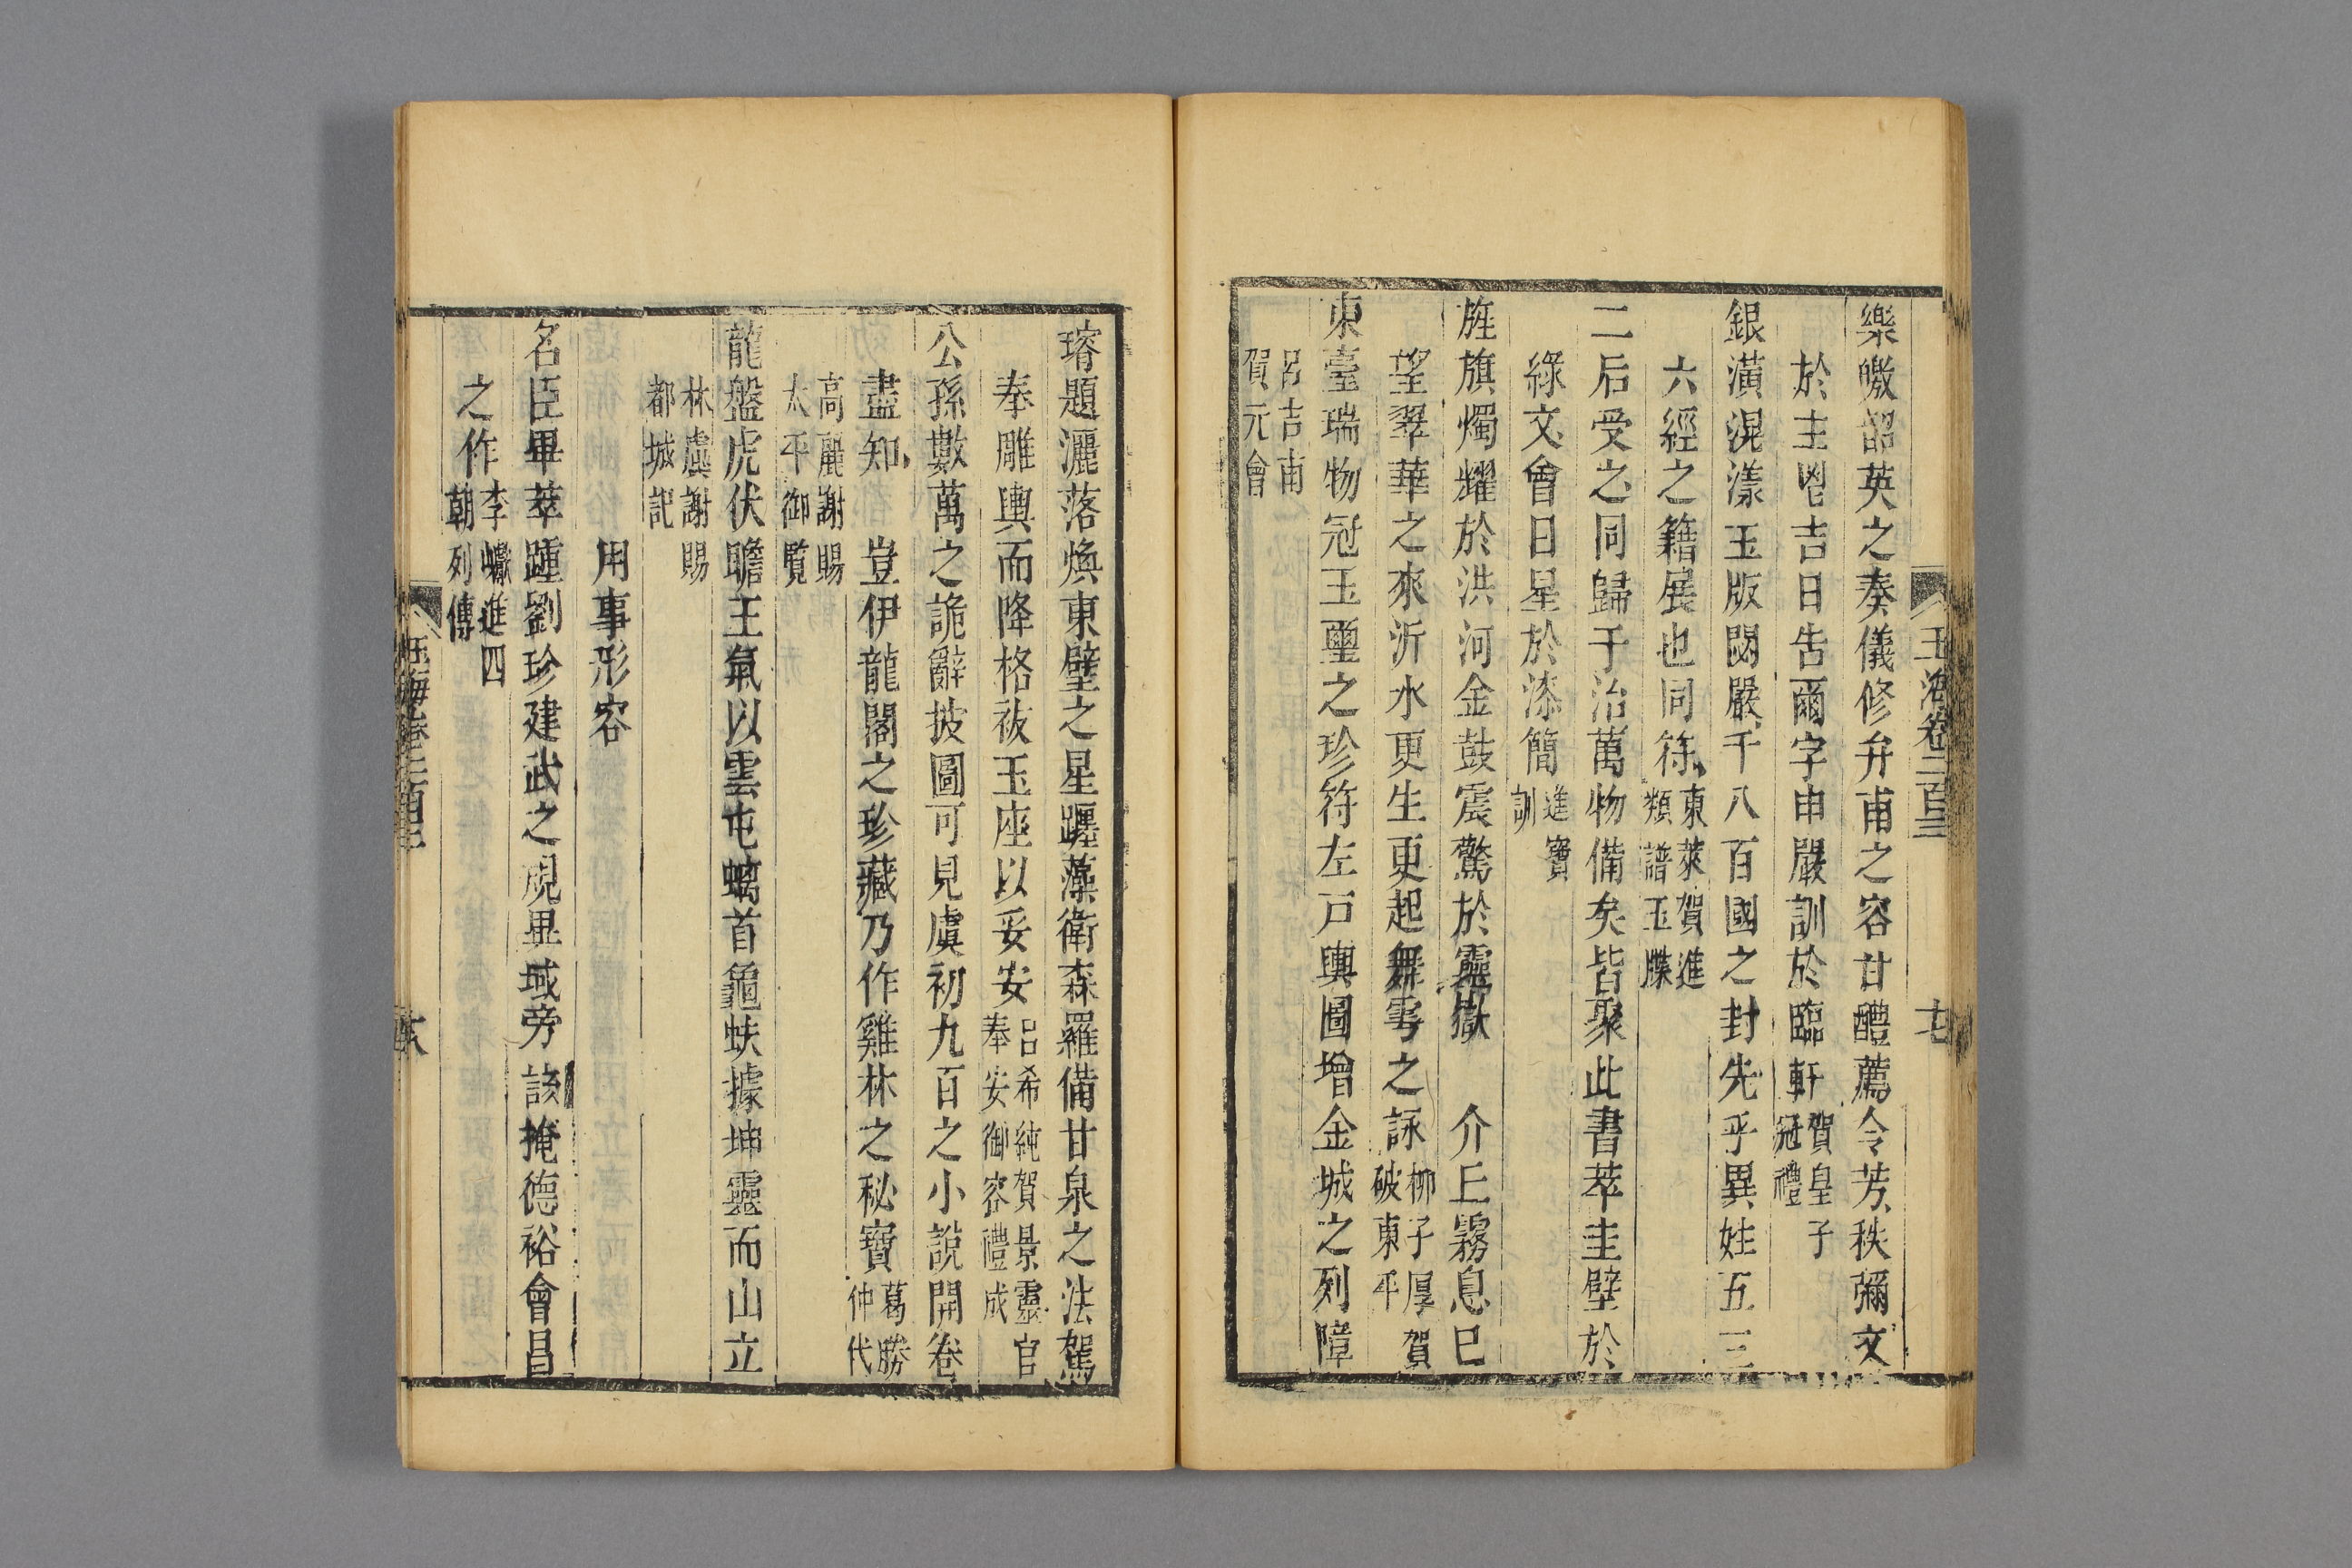 樂皦韶英之奏儀修弁甫之容甘醴薦令芳秩彌文
於主鬯吉日告爾字申嚴訓於臨軒賀皇子冠禮
銀潢滉漾玉版閟嚴千八百國之封先乎異姓五三
六經之籍展也同符東萊賀進類譜玉牒
二后受之同歸于治萬物備矣皆聚此書萃圭壁於
綠文會日星於漆簡進寶訓
旌旗燭耀於洪河金鼓震驚於靈嶽 介丘霧息巳
望翠華之來沂水更生更起舞雩之詠柳子厚賀破東平
東臺瑞物冠玉璽之珍符左戶輿圖增金城之列障
呂吉甫賀元會
玉海卷二百三 七
瑃題灑落煥東壁之星躔藻衛森羅備甘泉之法駕
奉雕輿而降格祓玉座以妥安呂希純賀景靈宮奉安御容禮成
公孫數萬之詭辭披圖可見虞初九百之小說開卷
盡知 豈伊龍閣之珍藏乃作雞林之秘寶葛勝仲代
高麗謝賜太平御覽
龍盤虎伏瞻王氣以雲屯螭首龜趺據坤靈而山立
林虙謝賜都城記
用事形容
名臣畢萃踵劉珍建武之規異域旁該掩德裕會昌
之作李巘進四朝列傳
玉海卷二百三